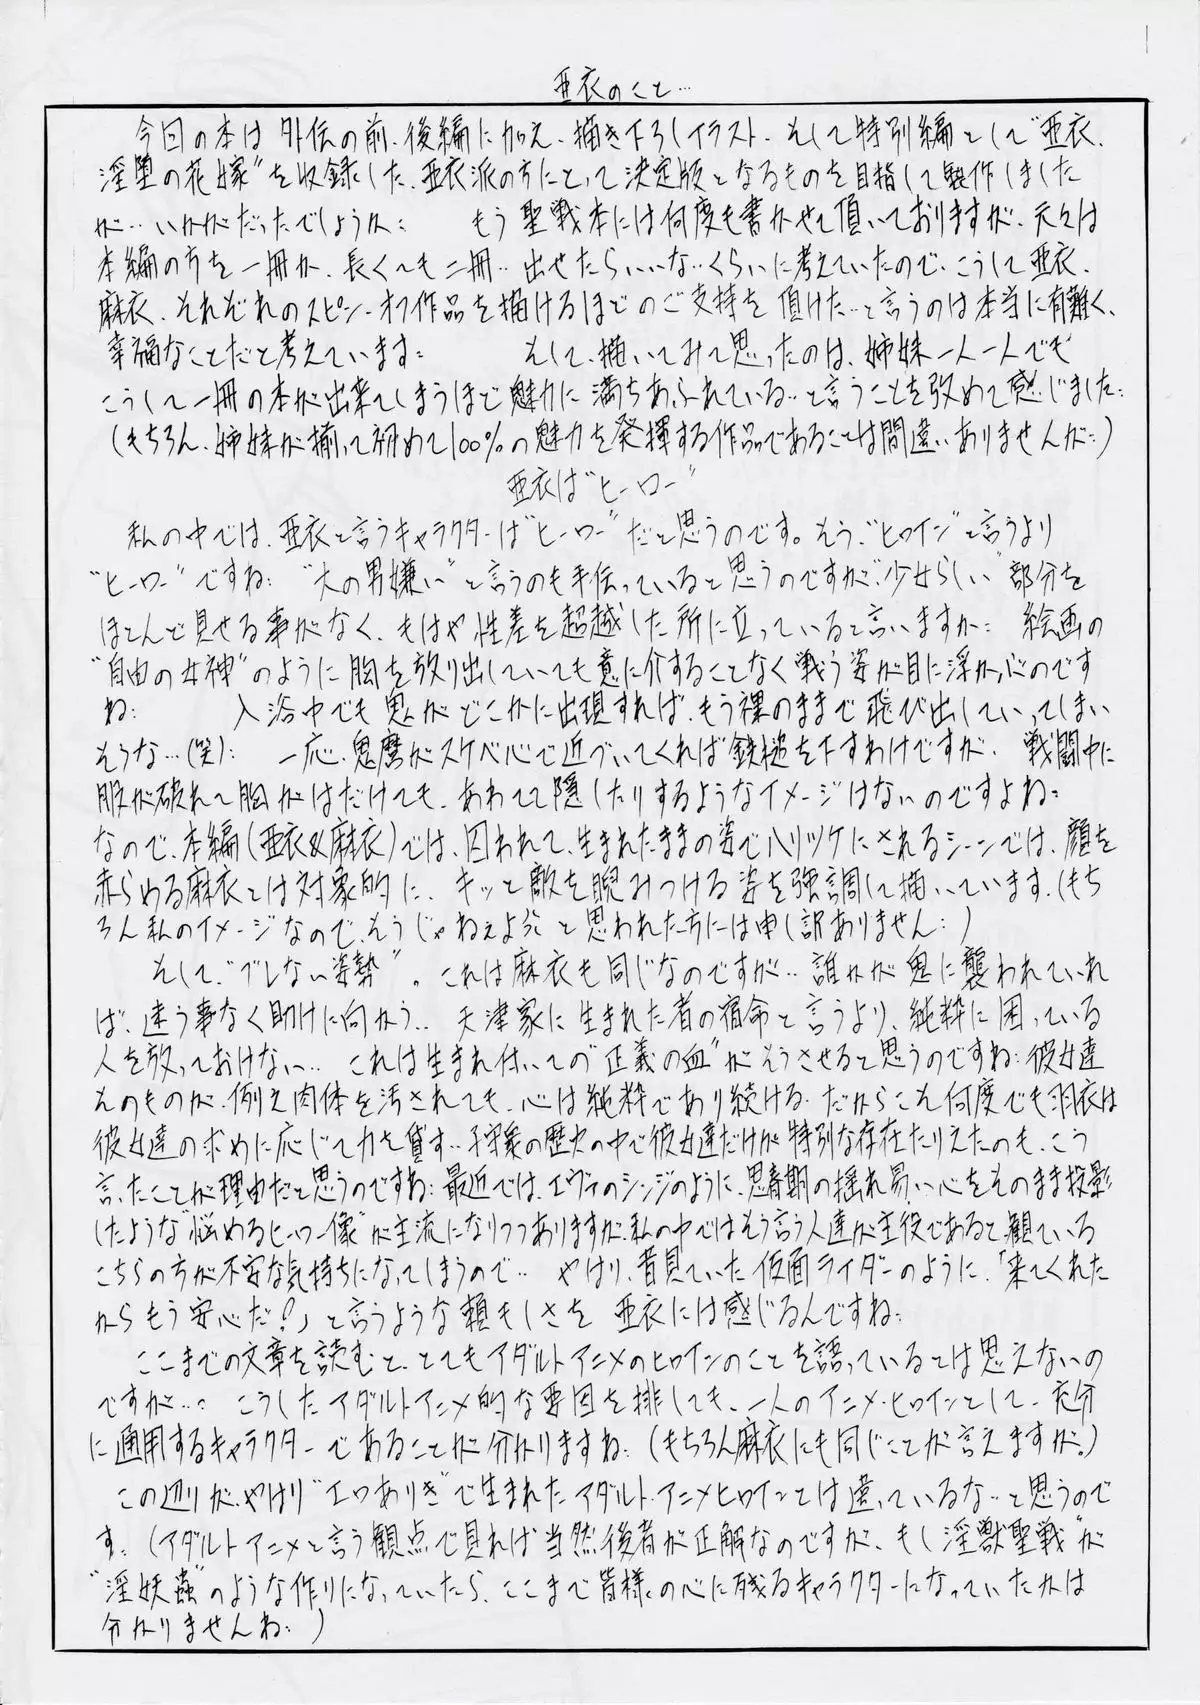 亜衣のこと…
今回の本は外伝の前、後編に加え、描き下ろしイラスト、そして特別編として"亜衣、
淫堕の花嫁"を収録した、亜衣派の方にとって決定版となるものを目指して製作しました
が…いかがだったでしょうか… もう聖戦本には何度も書かせて頂いておりますが、元々は
本編の方を一冊か、長くても二冊…出せたらいいな…くらいに考えていたので、こうして亜衣、
麻衣、それぞれのスピン・オフ作品を描けるほどのご支持を頂けた…と言うのは本当に有難く、
幸福なことだと考えています… そして、描いてみて思ったのは、姉妹一人一人でも
こうして一冊の本が出来てしまうほど魅力に満ちあふれている…と言うことを改めて感じました…
(もちろん、姉妹が揃って初めて100%の魅力を発揮する作品であることは間違いありませんが…)
亜衣は"ヒーロー"
私の中では、亜衣と言うキャラクターは"ヒーロー"だと思うのです。そう、"ヒロイン"と言うより
"ヒーロー"ですね… "大の男嫌い"と言うのも手伝っていると思うのですが、"少女らしい"部分を
ほとんど見せる事がなく、もはや性差を超越した所に立っていると言いますか… 絵画の
"自由の女神"のように胸を放り出していても意に介することなく戦う姿が目に浮かぶのです
ね… 入浴中でも鬼がどこかに出現すれば、もう裸のままで飛び出していってしまい
そうな…(笑)… 一応、鬼麿がスケベ心で近づいてくれば鉄槌を下すわけですが、戦闘中に
服が破れて胸がはだけても、あわてて隠したりするようなイメージはないのですよね…
なので、本編(亜衣&麻衣)では、囚われて、生まれたままの姿でハリツケにされるシーンでは、顔を
赤らめる麻衣とは対象的に、キッと敵を睨みつける姿を強調して描いています。(もち
ろん私のイメージなので、そうじゃねぇよ…と思われた方には申し訳ありません…)
そして"ブレない姿勢"。これは麻衣も同じなのですが…誰かが鬼に襲われていれ
ば、迷う事なく助けに向かう… 天津家に生まれた者の宿命と言うより、純粋に困っている
人を放っておけない… これは生まれ付いての"正義の血"がそうさせると思うのですね…彼女達
そのものが、例え肉体を汚されても、心は純粋であり続ける、だからこそ何度でも羽衣は
彼女達の求めに応じて力を貸す…子守衆の歴史の中で彼女達だけが特別な存在たりえたのも、こう
言ったことが理由だと思うのですね…最近では、エヴァのシンジのように、思春期の揺れ易い心をそのまま投影
したような"悩めるヒーロー像"が主流になりつつありますが、私の中ではそう言う人達が主役であると、観ている
こちらの方が不安な気持ちになってしまうので… やはり、昔見ていた仮面ライダーのように、「来てくれた
からもう安心だ!」と言うような頼もしさを亜衣には感じるんですね…
ここまでの文章を読むと、とてもアダルトアニメのヒロインのことを語っているとは思えないの
ですが…… こうしたアダルトアニメ的な要因を排しても、一人のアニメ・ヒロインとして、充分
に通用するキャラクターであることが分かりますね…(もちろん麻衣にも同じことが言えますが。)
この辺りが、やはり"エロありき"で生まれたアダルト・アニメヒロインとは違っているな…と思うので
す…(アダルトアニメと言う観点で見れば当然後者が正解なのですが、もし"淫獣聖戦"が
"淫妖蟲"のような作りになっていたら、ここまで皆様の心に残るキャラクターになっていたかは
分かりませんね…)